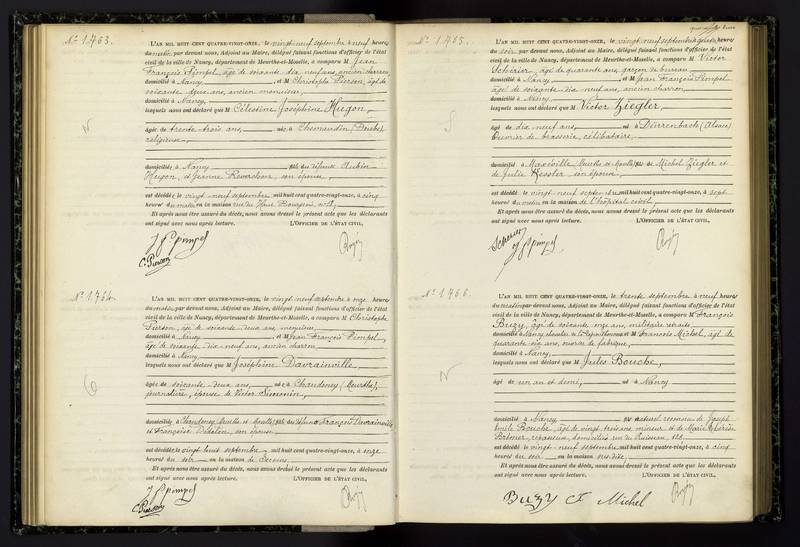 No 1.763.
L'AN MIL HUIT CENT QUATRE-VINGT-ONZE, le vingt-neuf septembre à neuf heures
du matin, par devant nous, Adjoint au Maire, délégué faisant fonctions d'officier de l'état
civil de la ville de Nancy, département de Meurthe-et-Moselle, a comparu M Jean
François Pimpel, âgé de soixante dix neuf ans, ancien charron
domicilié à Nancy et M Christophe Pierson, âgé de
soixante deux ans, ancien menuisier,
domicilié à Nancy,
lesquels nous ont déclaré que M Célestine Joséphine Hugon,
âgée de trente-trois ans, née à (Doubs),
religieuse
domiciliée à Nancy fille des défunts Aubin
Hugon, et Jeanne son épouse,
est décédée le vingt neuf septembre mil huit cent quatre-vingt-onze, à cinq
heures du matin en la maison rue du Haut Bourgeois,
Et après nous être assuré du décès, nous avons dressé le présent acte que les déclarants
ont signé avec nous après lecture. L'OFFICIER DE L'ÉTAT CIVIL,
J F Pimpel
C. Pierson
No 1.764.
L'AN MIL HUIT CENT QUATRE-VINGT-ONZE, le vingt neuf septembre à onze heures
du matin, par devant nous, Adjoint au Maire, délégué faisant fonctions d'officier de l'état
civil de la ville de Nancy, département de Meurthe-et-Moselle, a comparu M Christophe
Pierson, âgé de soixante deux ans, menuisier
domicilié à Nancy et M Jean François Pimpel,
âgé de soixante dix neuf ans, ancien charron
domicilié à Nancy
lesquels nous ont déclaré que M Joséphine Davrainville
âgée de soixante deux ans, née à Chaudeney (Meurthe),
journalière, épouse de Victor
domiciliée à Chaudeney Meurthe et Moselle, fille des défunts François Davrainville
et Françoise son épouse
est décédée le vingt huit septembre mil huit cent quatre-vingt-onze, à onze
heures du soir en la maison de Secours
Et après nous être assuré du décès, nous avons dressé le présent acte que les déclarants
ont signé avec nous après lecture. L'OFFICIER DE L'ÉTAT CIVIL,
J F Pimpel
C. Pierson
No 1.765.
L'AN MIL HUIT CENT QUATRE-VINGT-ONZE, le vingt neuf septembre à heures
du soir, par devant nous, Adjoint au Maire, délégué faisant fonctions d'officier de l'état
civil de la ville de Nancy, département de Meurthe-et-Moselle, a comparu M Victor
Scherier, âgé de quarante ans, garçon de bureau
domicilié à Nancy et M Jean François Pimpel
âgé de soixante dix neuf ans, ancien charron
domicilié à Nancy,
lesquels nous ont déclaré que M Victor Ziegler,
âgé de dix neuf ans, né à Dürrenbach (Alsace)
Ouvrier de brasserie, célibataire,
domicilié à Maxéville Meurthe et Moselle, fils de Michel Ziegler et
de Julie Kessler son épouse
est décédé le vingt neuf septembre, mil huit cent quatre-vingt-onze, à sept
heures du matin, en la maison de l'hôpital civil,
Et après nous être assuré du décès, nous avons dressé le présent acte que les déclarants
ont signé avec nous après lecture. L'OFFICIER DE L'ÉTAT CIVIL,
J F Pimpel
No 1.766.
L'AN MIL HUIT CENT QUATRE-VINGT-ONZE, le trente septembre à neuf heures
du matin par devant nous, Adjoint au Maire, délégué faisant fonctions d'officier de l'état
civil de la ville de Nancy, département de Meurthe-et-Moselle, a comparu M François
Buzy, âgé de soixante onze ans, militaire retraité
domicilié à Nancy et M François Michel, âgé de
quarante six ans, ouvrier de fabrique,
domicilié à Nancy,
lesquels nous ont déclaré que M Jules Bouche,
âgé de un an et demi, né à Nancy
domicilié à Nancy fils naturel reconnu de Joseph
Emile Bouche, âgé de vingt trois ans mineur et de Marie
repasseuse, domiciliés rue du Ruisseau
est décédé le vingt neuf septembre mil huit cent quatre-vingt-onze, à cinq
heures du soir en la maison sus-dite,
Et après nous être assuré du décès, nous avons dressé le présent acte que les déclarants
ont signé avec nous après lecture. L'OFFICIER DE L'ÉTAT CIVIL,
Buzy Michel